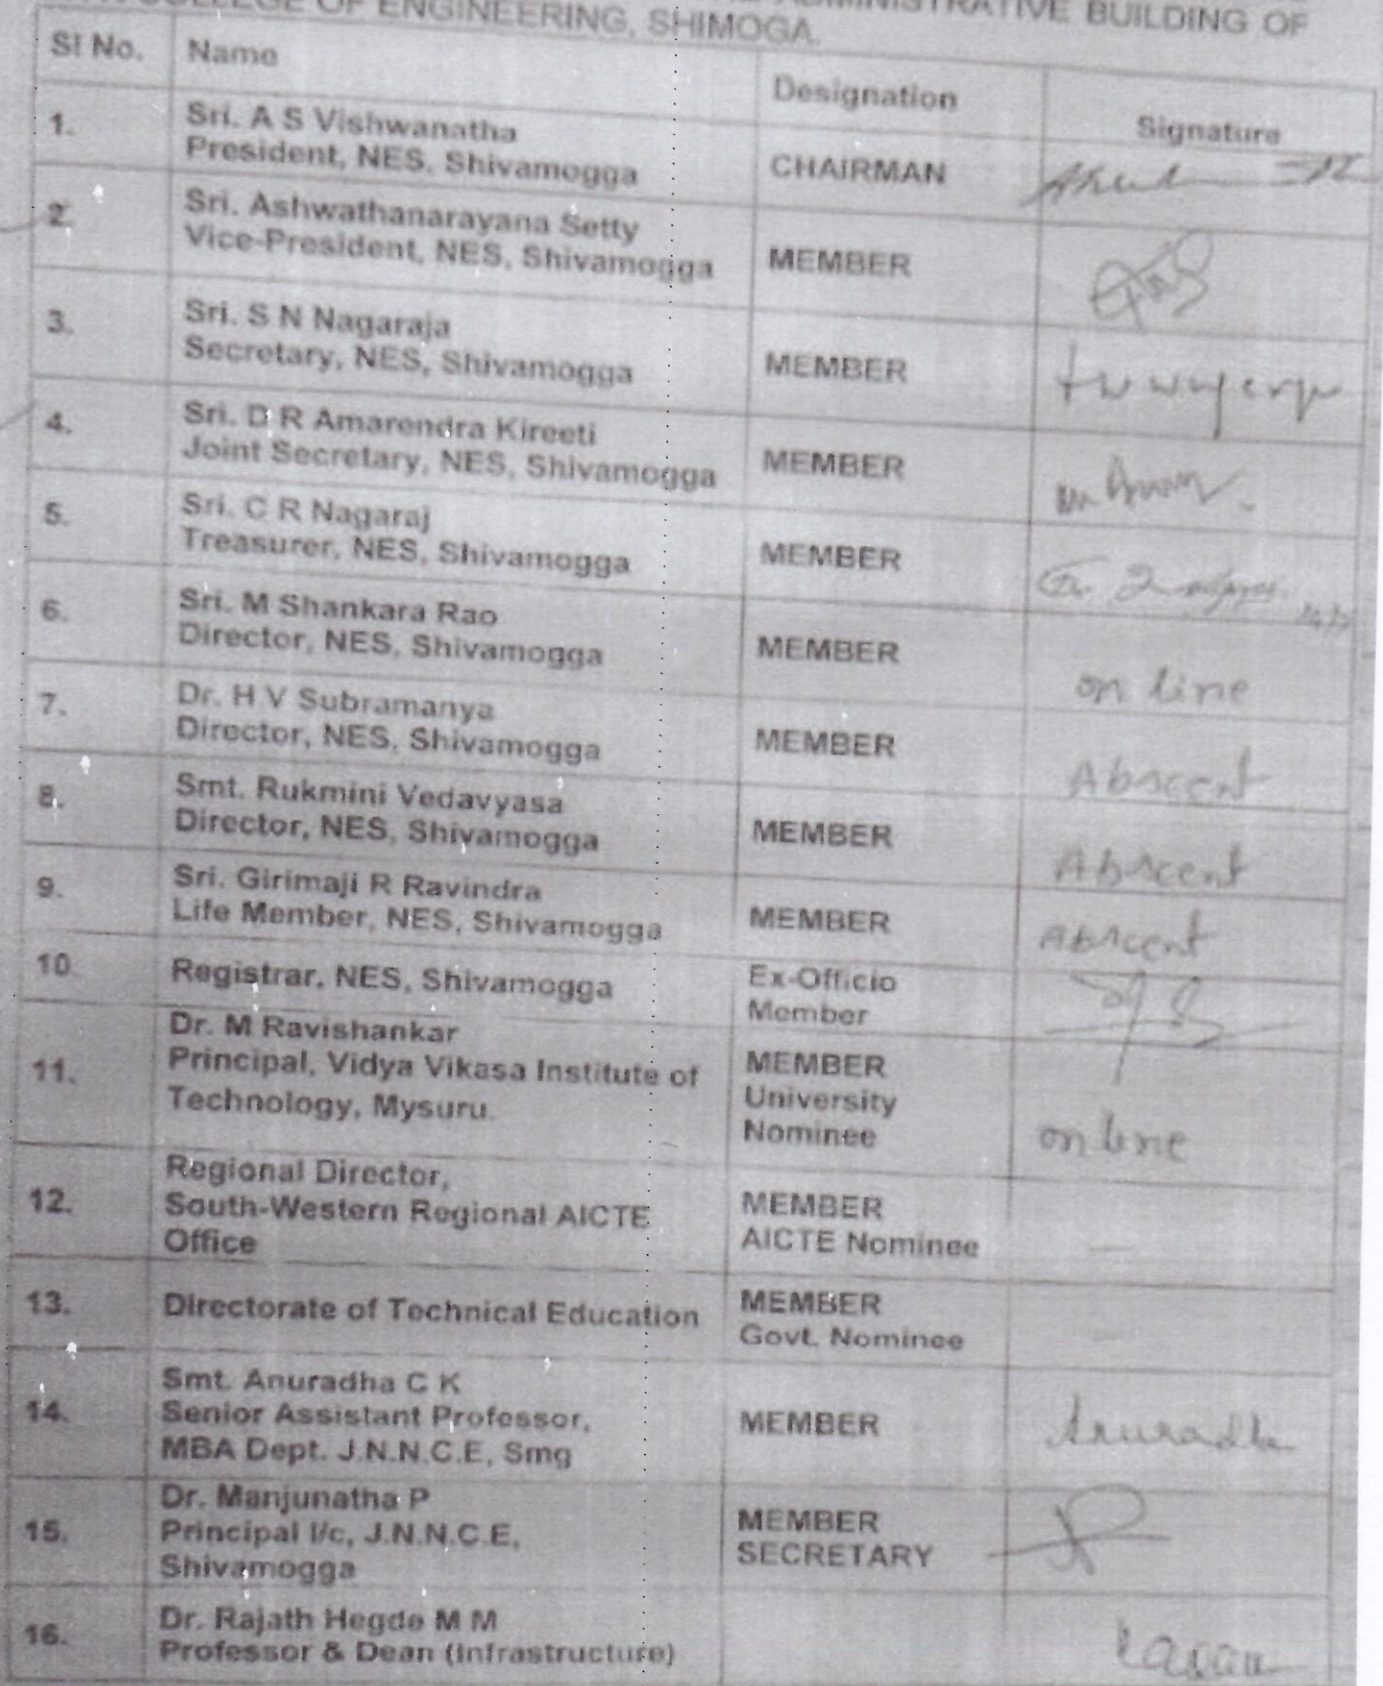 ADMINISTRATIVE BUILDING OF
COLLEGE OF ENGINEERING, SHIMOGA
Sl No. Name Designation Signature
1. Sri. A S Vishwanatha
President, NES, Shivamogga CHAIRMAN
2. Sri. Ashwathanarayana Setty
Vice-President, NES, Shivamogga MEMBER
3. Sri. S N Nagaraja
Secretary, NES, Shivamogga MEMBER
4. Sri. D R Amarendra Kireeti
Joint Secretary, NES, Shivamogga MEMBER
5. Sri. C R Nagaraj
Treasurer, NES, Shivamogga MEMBER
6. Sri. M Shankara Rao
Director, NES, Shivamogga MEMBER on line
7. Dr. H V Subramanya
Director, NES, Shivamogga MEMBER Abscent
8. Smt. Rukmini Vedavyasa
Director, NES, Shivamogga MEMBER Abscent
9. Sri. Girimaji R Ravindra
Life Member, NES, Shivamogga MEMBER Abscent
10. Registrar, NES, Shivamogga Ex-Officio
Member
Dr. M Ravishankar
11. Principal, Vidya Vikasa Institute of MEMBER
Technology, Mysuru. University
Nominee on line
Regional Director,
12. South-Western Regional AICTE MEMBER
Office AICTE Nominee —
13. Directorate of Technical Education MEMBER
Govt. Nominee —
Smt. Anuradha C K
14. Senior Assistant Professor, MEMBER Anuradha
MBA Dept. J.N.N.C.E, Smg
Dr. Manjunatha P
15. Principal I/c, J.N.N.C.E, MEMBER
Shivamogga SECRETARY
16. Dr. Rajath Hegde M M
Professor & Dean (Infrastructure)